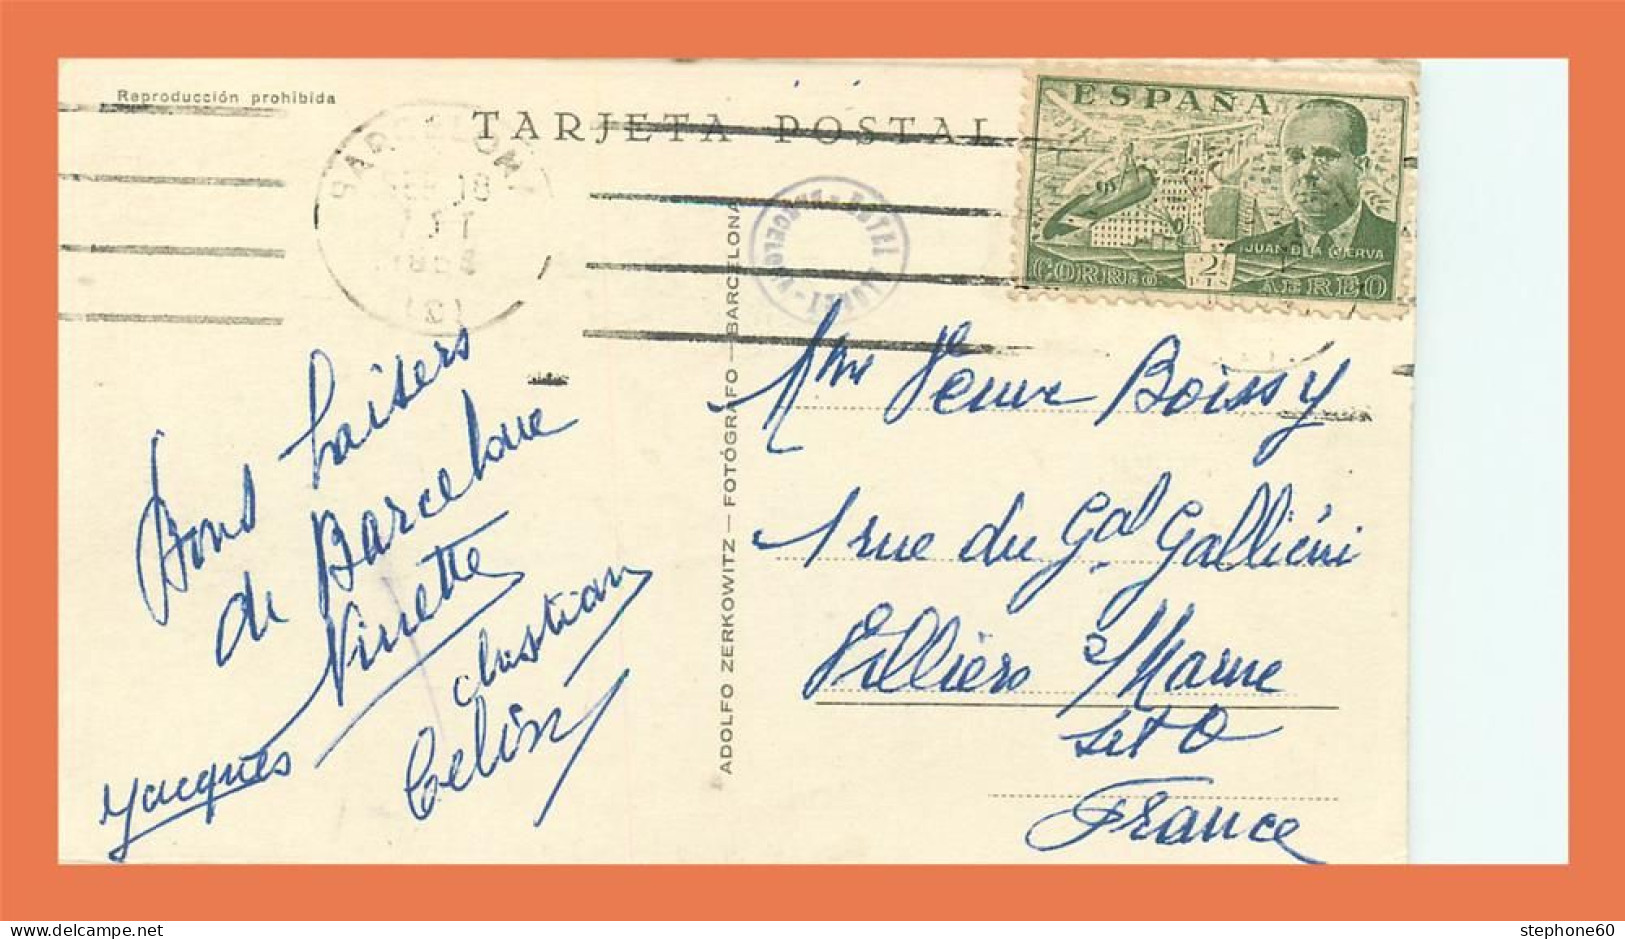 Reproducción prohibida
TARJETA POSTAL
BARCELONA
ESPAÑA
JUAN DE LA CIERVA
2 PTS
CORREO AEREO
HOTEL
BARCELONA
ADOLFO ZERKOWITZ — FOTÓGRAFO — BARCELONA
Bons baisers
de Barcelone
Ninette
Christian
Jacques
Celin
Mme Veuve Boissy
1 rue du Gal Galliéni
Villiers s/Marne
Set O
France
stephone60